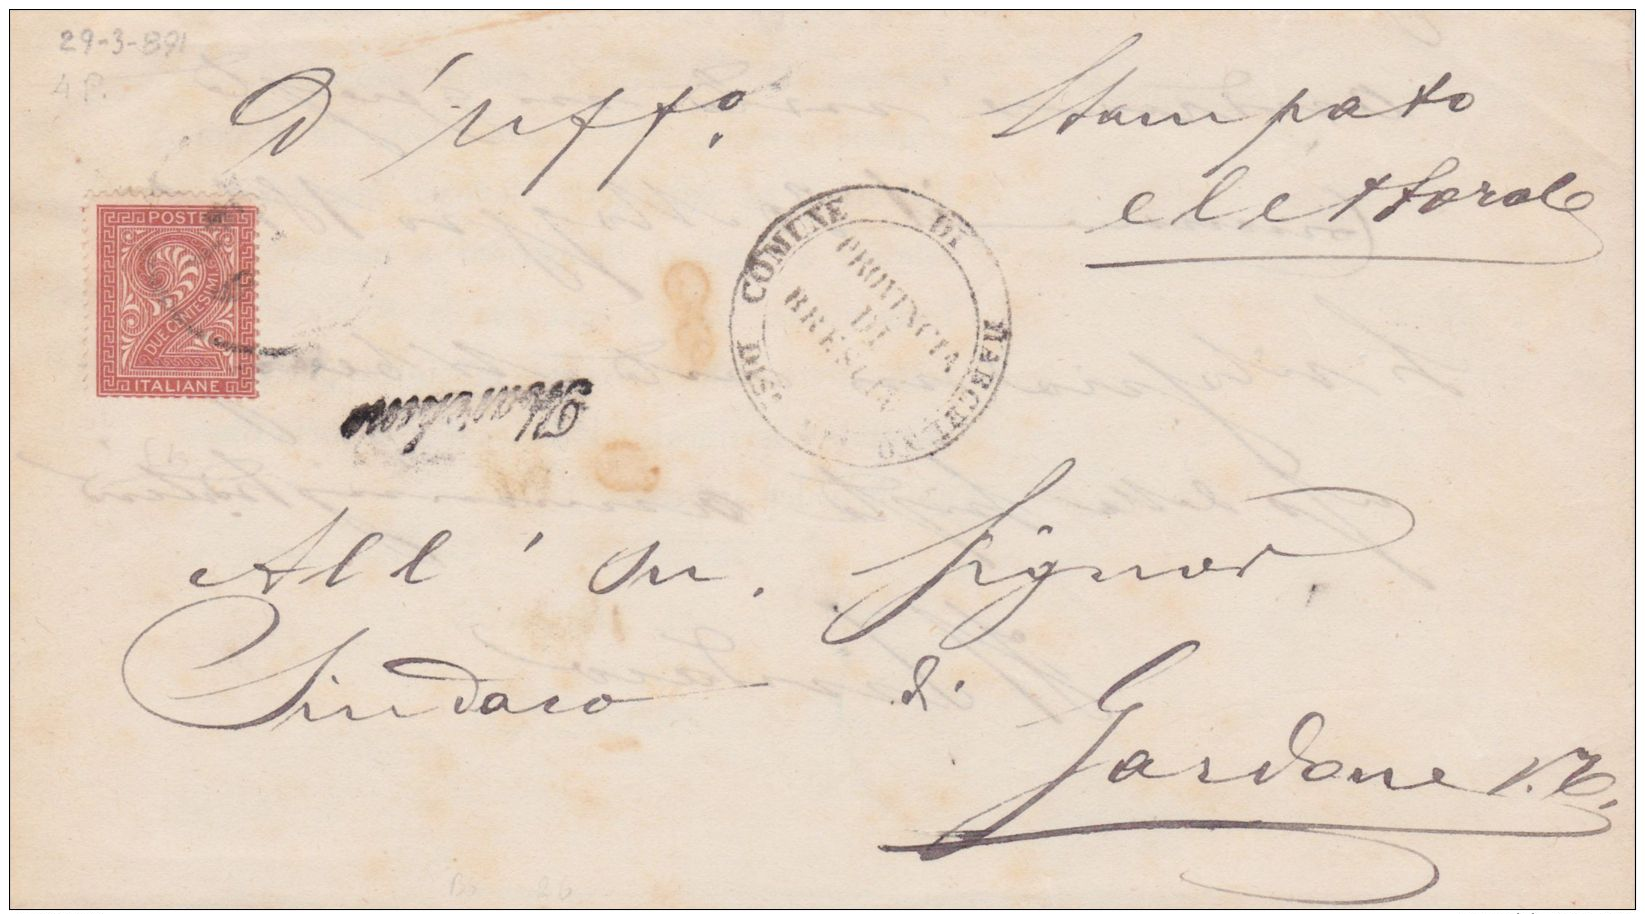 29-3-891
4 P.
D'uff.o
Stampato
elettorale
POSTE
2
DUE CENTESIMI
ITALIANE
COMUNE DI MARCHENO
PROVINCIA
DI
BRESCIA
All' On. Signor
Sindaco di
Gardone V.T.